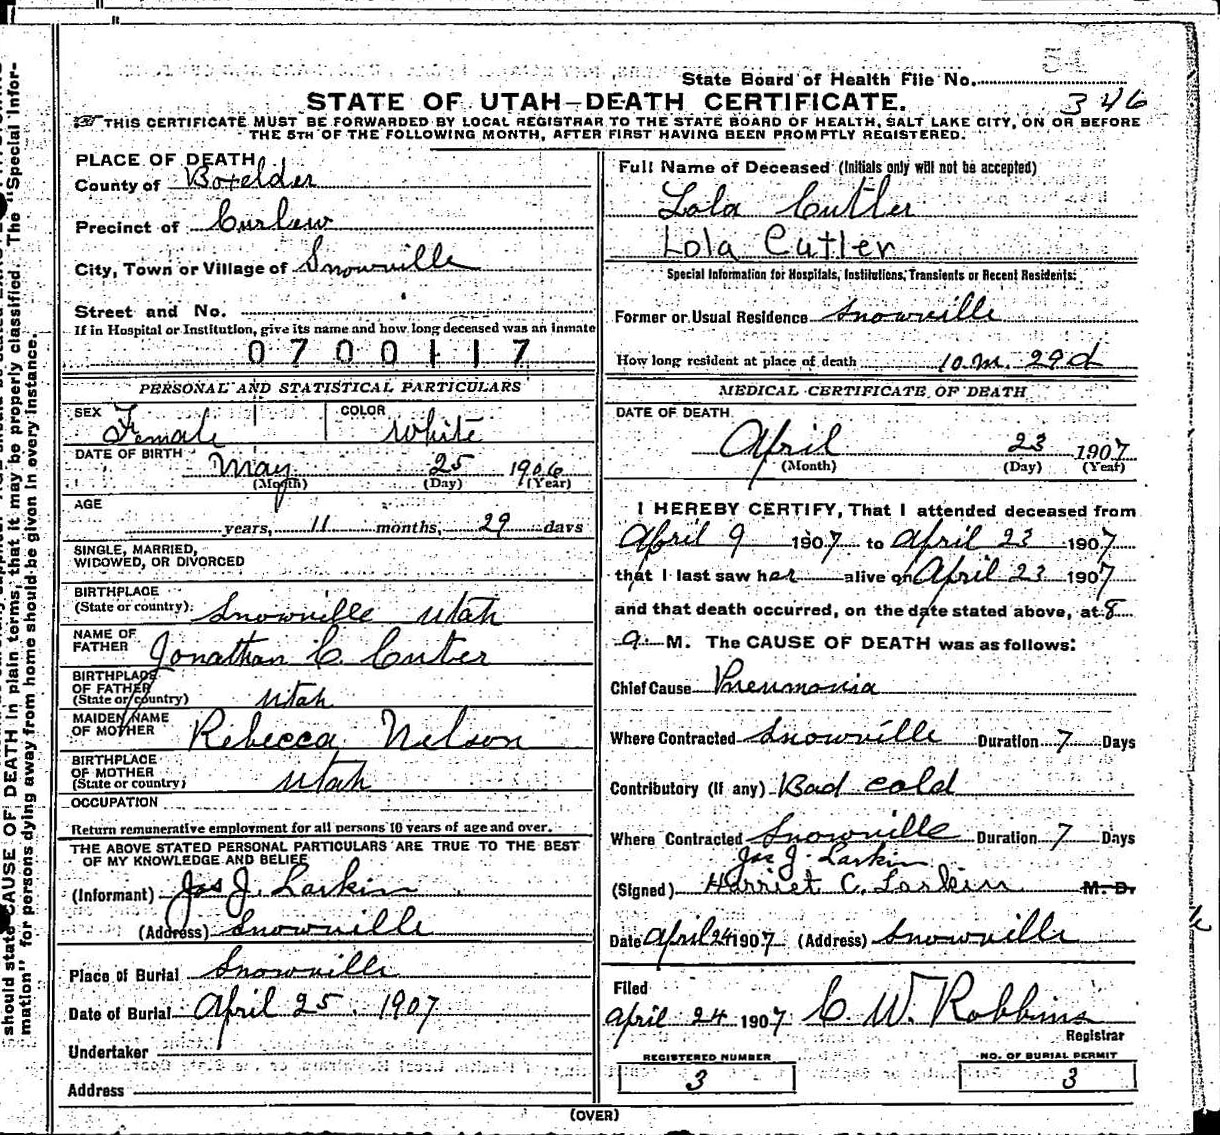 51
State Board of Health File No.
346
STATE OF UTAH—DEATH CERTIFICATE.
THIS CERTIFICATE MUST BE FORWARDED BY LOCAL REGISTRAR TO THE STATE BOARD OF HEALTH, SALT LAKE CITY, ON OR BEFORE
THE 5TH OF THE FOLLOWING MONTH, AFTER FIRST HAVING BEEN PROMPTLY REGISTERED.
PLACE OF DEATH
County of Boxelder
Precinct of Curlew
City, Town or Village of Snowville
Street and No.
If in Hospital or Institution, give its name and how long deceased was an inmate
0700117
PERSONAL AND STATISTICAL PARTICULARS
SEX Female COLOR White
DATE OF BIRTH May 25 1906
(Month) (Day) (Year)
AGE
years, 11 months, 29 days
SINGLE, MARRIED,
WIDOWED, OR DIVORCED
BIRTHPLACE
(State or country) Snowville Utah
NAME OF
FATHER Jonathan C. Cutler
BIRTHPLACE
OF FATHER
(State or country) Utah
MAIDEN NAME
OF MOTHER Rebecca Nelson
BIRTHPLACE
OF MOTHER
(State or country) Utah
OCCUPATION
Return remunerative employment for all persons 10 years of age and over.
THE ABOVE STATED PERSONAL PARTICULARS ARE TRUE TO THE BEST
OF MY KNOWLEDGE AND BELIEF
(Informant) Jos J. Larkin
(Address) Snowville
Place of Burial Snowville
Date of Burial April 25. 1907
Undertaker
Address
Full Name of Deceased (Initials only will not be accepted)
Lola Cutler
Lola Cutler
Special Information for Hospitals, Institutions, Transients or Recent Residents:
Former or Usual Residence Snowville
How long resident at place of death 10 m. 29 d
MEDICAL CERTIFICATE OF DEATH
DATE OF DEATH
April 23 1907
(Month) (Day) (Year)
I HEREBY CERTIFY, That I attended deceased from
April 9 1907 to April 23 1907
that I last saw her alive on April 23 1907
and that death occurred, on the date stated above, at 8
a. M. The CAUSE OF DEATH was as follows:
Chief Cause Pneumonia
Where Contracted Snowville Duration 7 Days
Contributory (If any) Bad cold
Where Contracted Snowville Duration 7 Days
Jos J. Larkin
(Signed) Harriet C. Larkin M. D.
Date April 24 1907 (Address) Snowville
Filed
April 24 1907 C W. Robbins
Registrar
REGISTERED NUMBER
3
NO. OF BURIAL PERMIT
3
(OVER)
should state CAUSE OF DEATH in plain terms, that it may be properly classified. The "Special Infor-
mation" for persons dying away from home should be given in every instance.